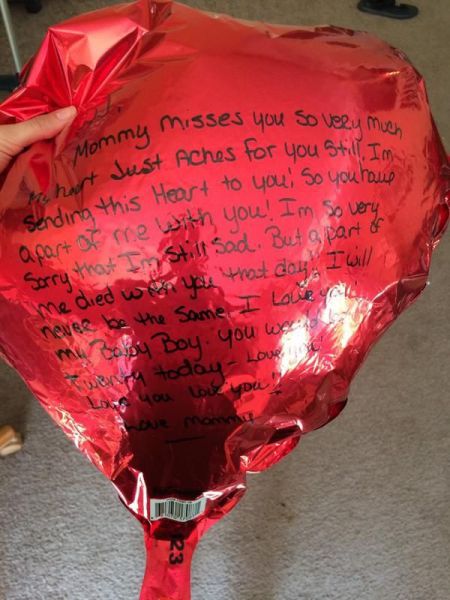 Mommy misses you so very much
My heart Just Aches for you Still, I'm
sending this Heart to you! So you have
a part of me with you! I'm So very
Sorry that I'm still sad. But a part of
me died with you that day! I will
never be the same. I Love you
my Baby Boy. you would be
Twenty today - Love you!
Love you love you!!
Love Mommy
23